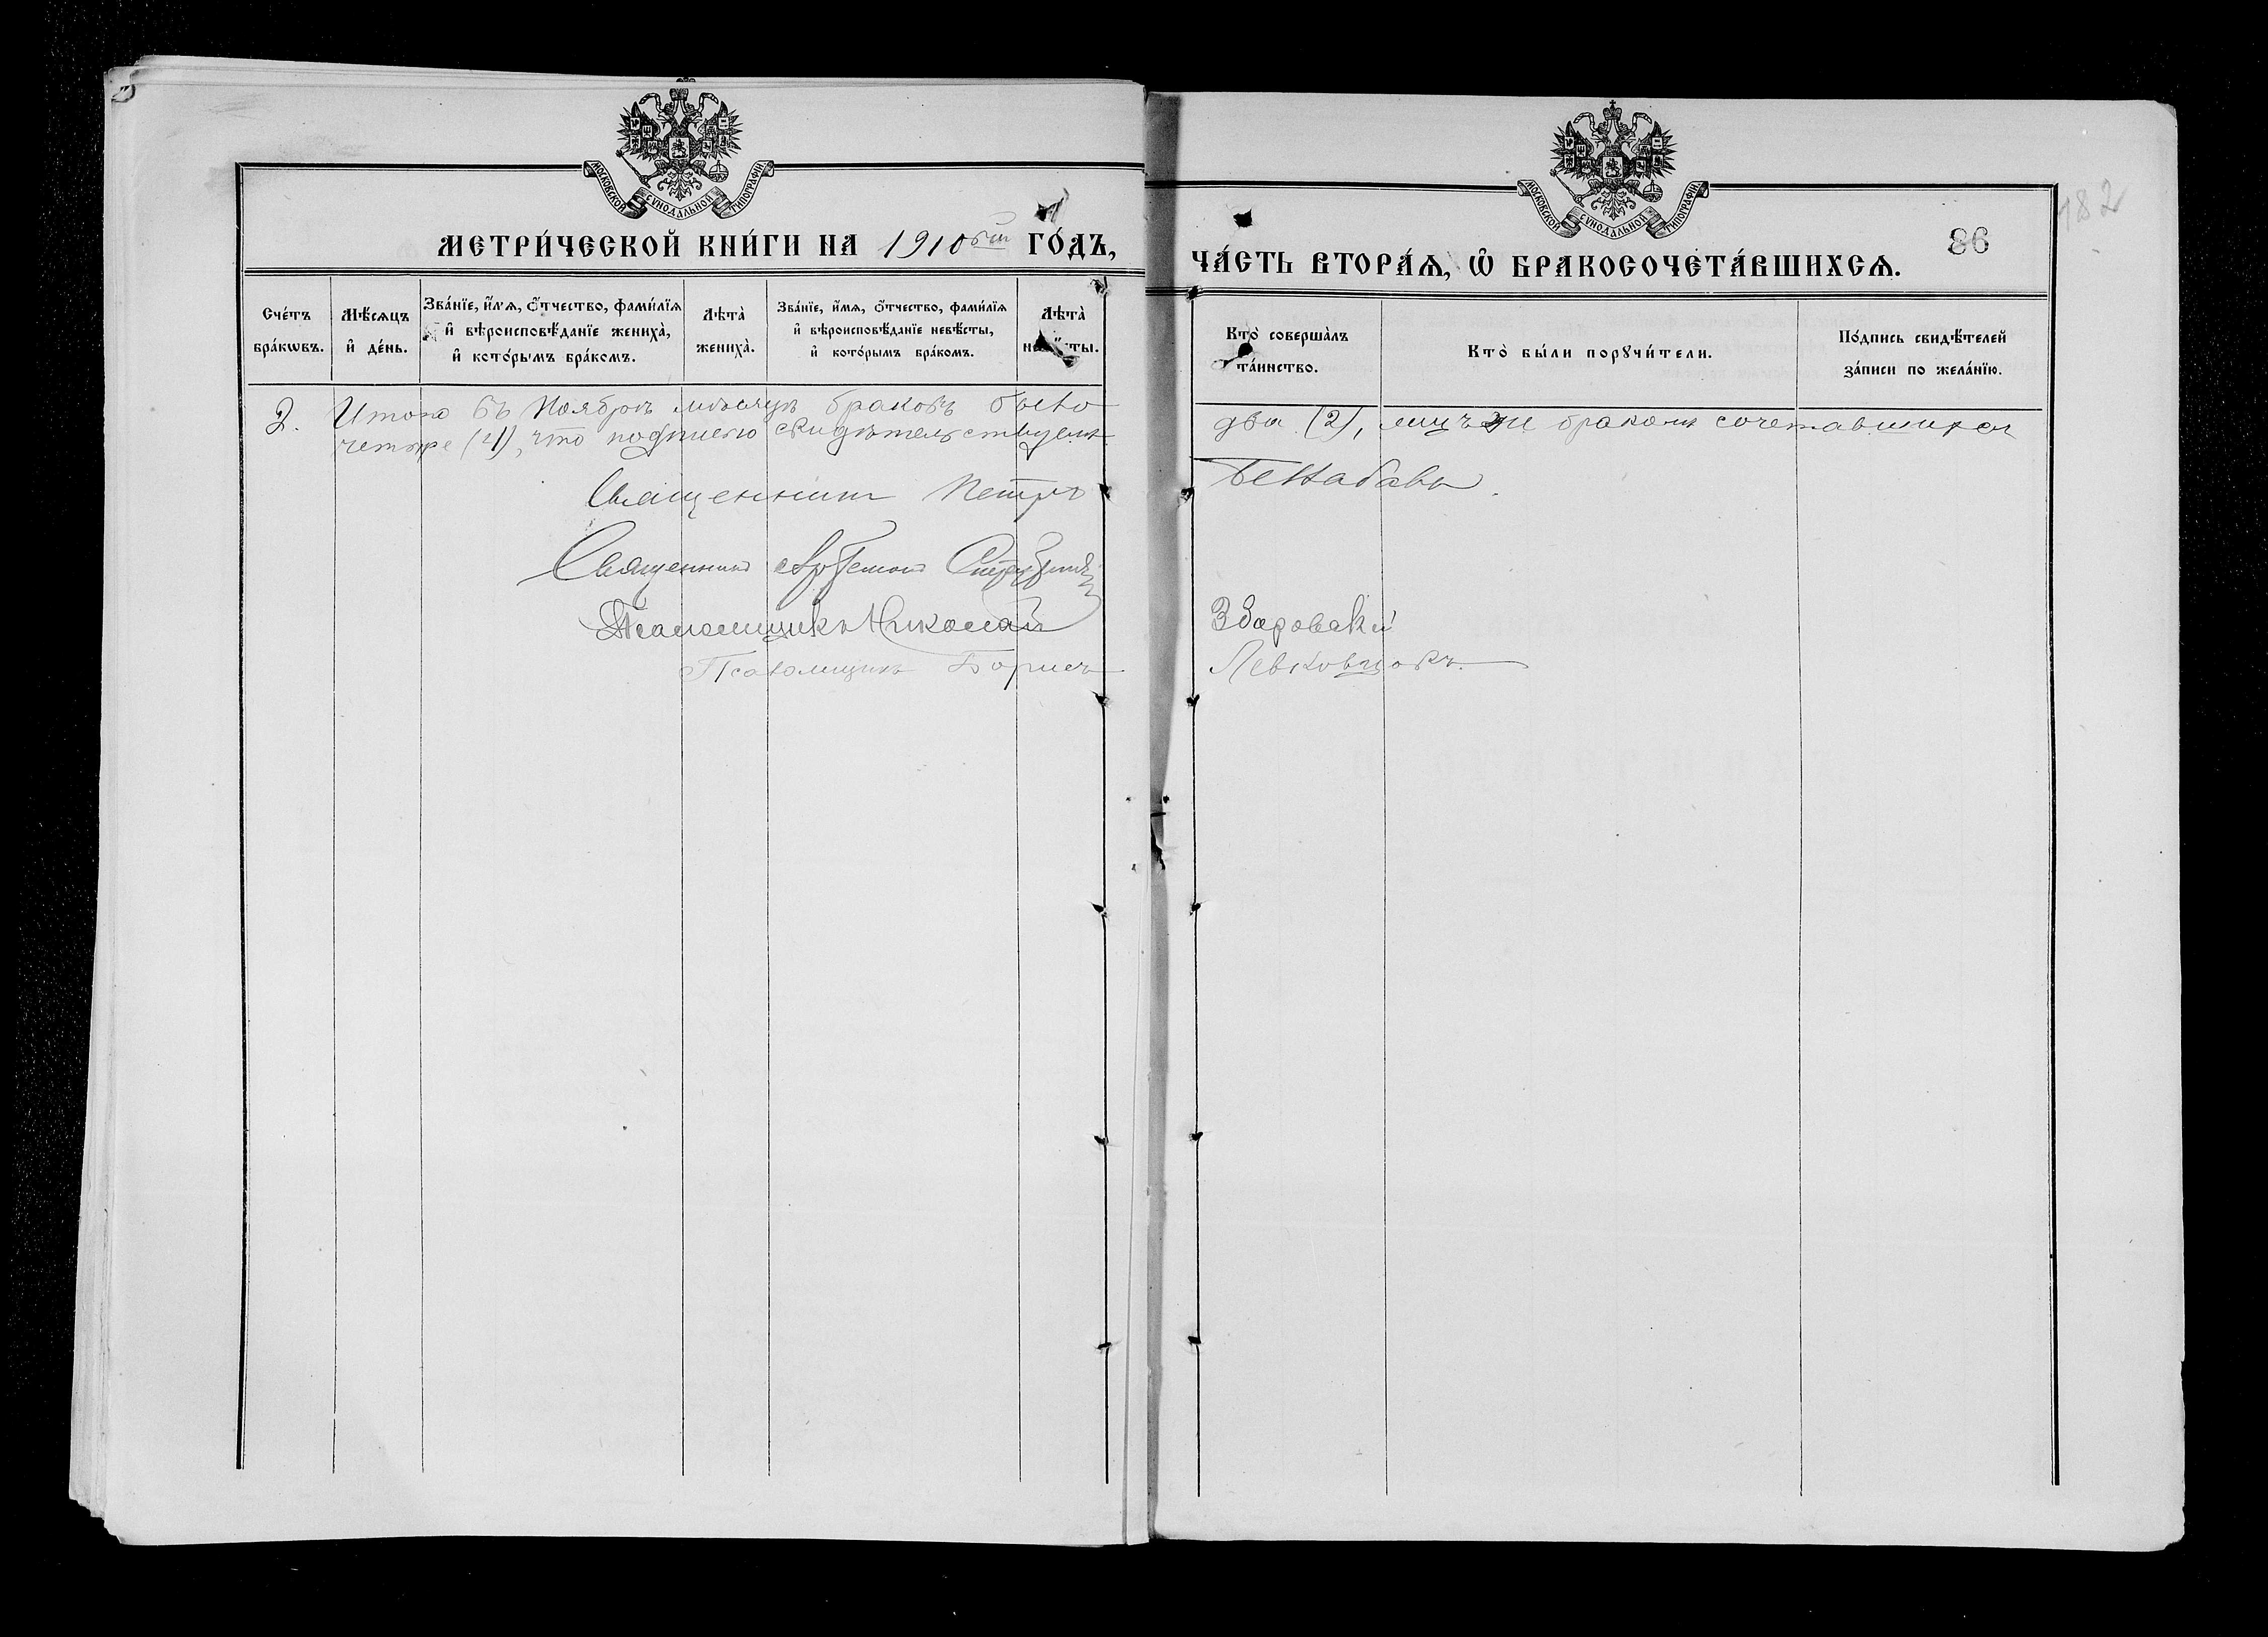 МОСКОВСКОЙ СѴНОДАЛЬНОЙ ТИПОГРАФІИ.
МЕТРИ́ЧЕСКОЙ КНИ́ГИ НА 1910ый ГО́ДЪ,
Сче́тъ бра́кѡвъ.
Мѣ́сяцъ и҆ де́нь.
Зва́нїе, и҆́мя, ѻ҆́тчество, фами́лїя и҆ вѣроисповѣ́данїе жениха̀, и҆ кото́рымъ бра́комъ.
Лѣ́та̀ жениха̀.
Зва́нїе, и҆́мя, ѻ҆́тчество, фами́лїя и҆ вѣроисповѣ́данїе невѣ́сты, и҆ кото́рымъ бра́комъ.
Лѣ́та̀ невѣ́сты.
2. Итого въ Ноябрѣ мѣсяцѣ браковъ было
четыре (4), что подписью свидѣтельствуемъ
Священникъ Петръ
Священникъ
Псаломщикъ Николай
Псаломщикъ Борисъ
МОСКОВСКОЙ СѴНОДАЛЬНОЙ ТИПОГРАФІИ.
182
86
ЧА́СТЬ ВТОРА́Я, Ѡ҆ БРАКОСОЧЕТА́ВШИХСЯ.
Кто̀ соверша́лъ та́инство.
Кто̀ бы́ли порꙋчи́тели.
По́дпись свидѣ́телей за́писи по жела́нїю.
два (2), лицъ же бракомъ сочетавшихся
Збаровскій
Левковцовъ.